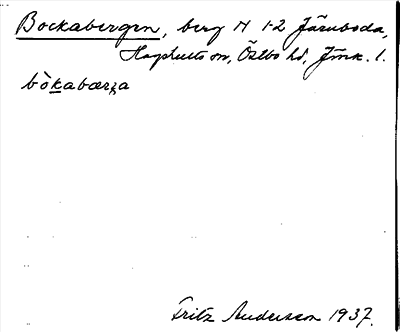 Bockabergen, berg N 1-2 Järnboda,
Hagshults sn, Östbo hd, Jmk. l.
bòkabærʒa
Fritz Andersson 1937.